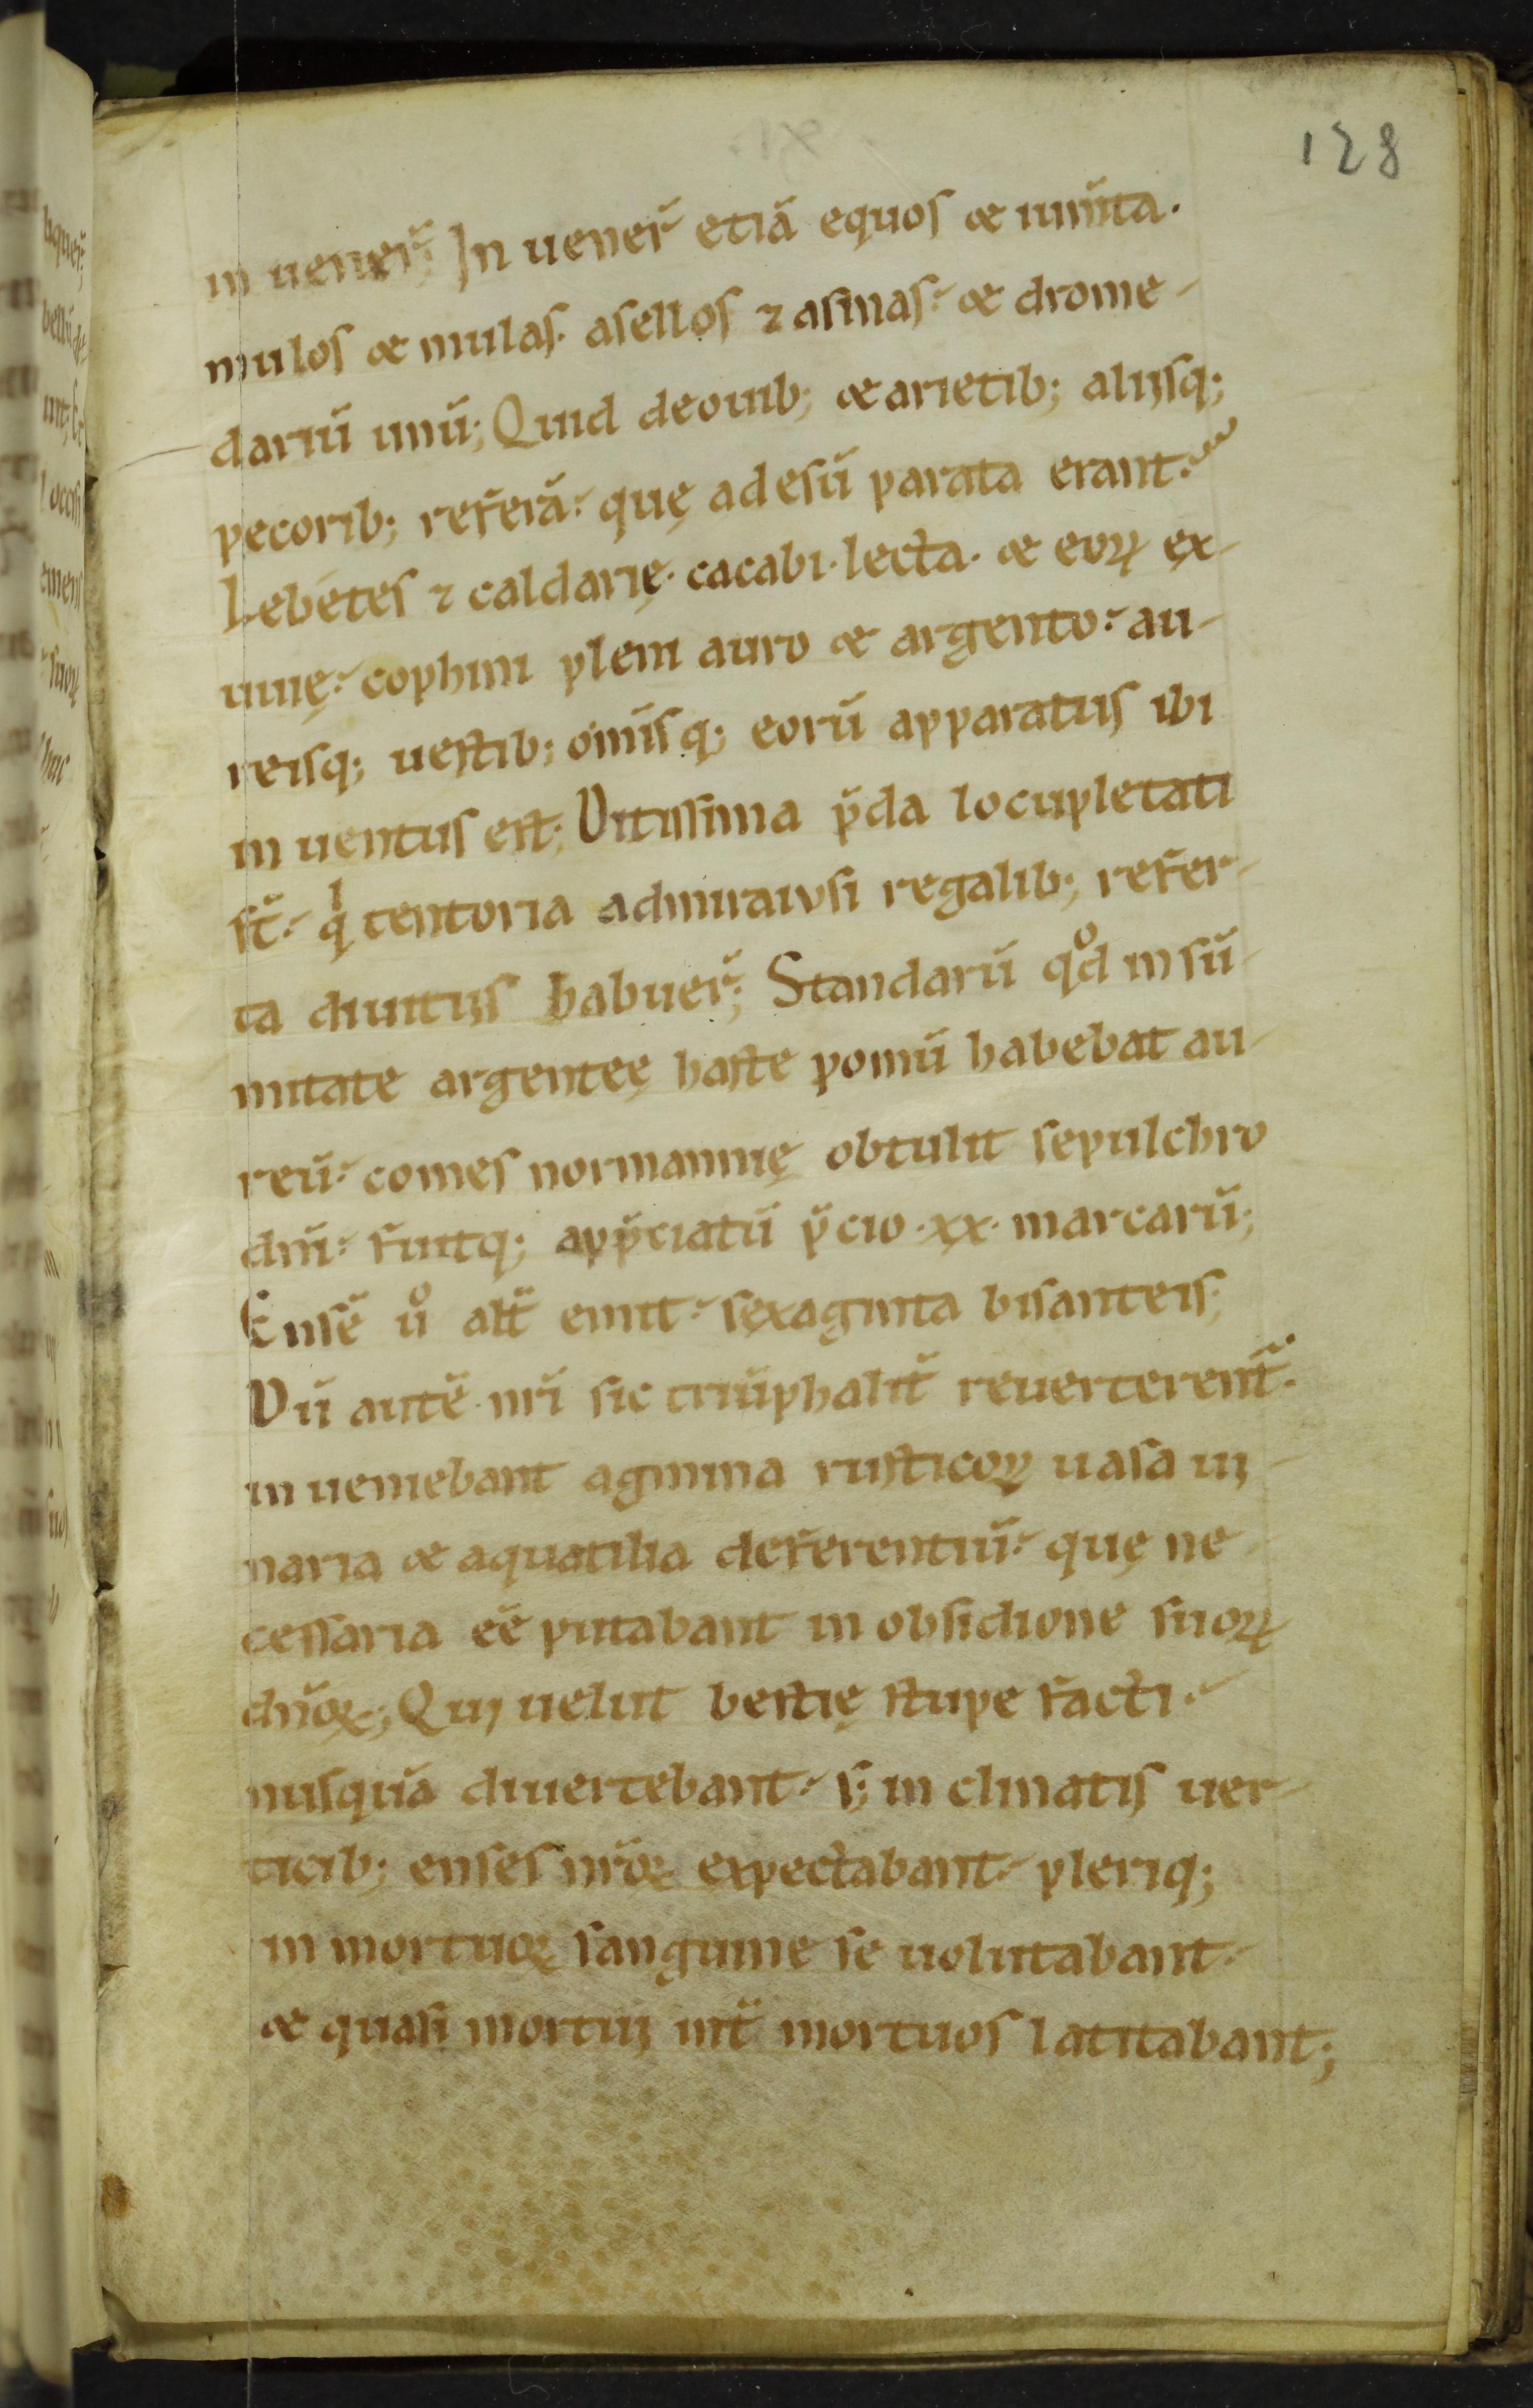 128
in uener̃; In uener̃ etiã equos & ium̃ta.
mulos & mulas. asellos ⁊ asinas. & drome-
dariũ unũ; Quid deouib; & arietib; alijsq;
pecorib; referã. quę adesũ parata erant.
Lebétes ⁊ caldarię. cacabi. lecta. & eoꝝ ex-
uuię. cophini pleni auro & argento. au-
reisq; uestib; om̃isq; eorũ apparatus ibi
in uentus est; Ditissima p̃da locupletati
st̃. qͥ tentoria admiraiusi regalib; refer-
ta diuitijs habuer̃; Standarũ qͦd in sũ-
mitate argenteę haste pomũ habebat au-
reũ. comes normannię obtulit sepulchro
dñi. fuitq; app̃ciatũ p̃cio .xx. marcarũ;
Ensẽ uͦ alt̃ emit. sexaginta bisanteis;
Dũ autẽ nr̃i sic triũphalit̃ reuerterent̃.
in ueniebant agmina rusticoꝝ uasa uj-
naria & aquatilia deferentiũ. quę ne-
cessaria eẽ putabant in obsidione suoꝝ
dñoꝝ; Quj uelut bestię stupe facti.
nusquã diuertebant. s; in clinatis uer-
ticib; enses nr̃oꝝ expectabant. pleriq;
in mortuoꝝ sanguine se uolutabant.
& quasi mortuj int̃ mortuos latitabant;